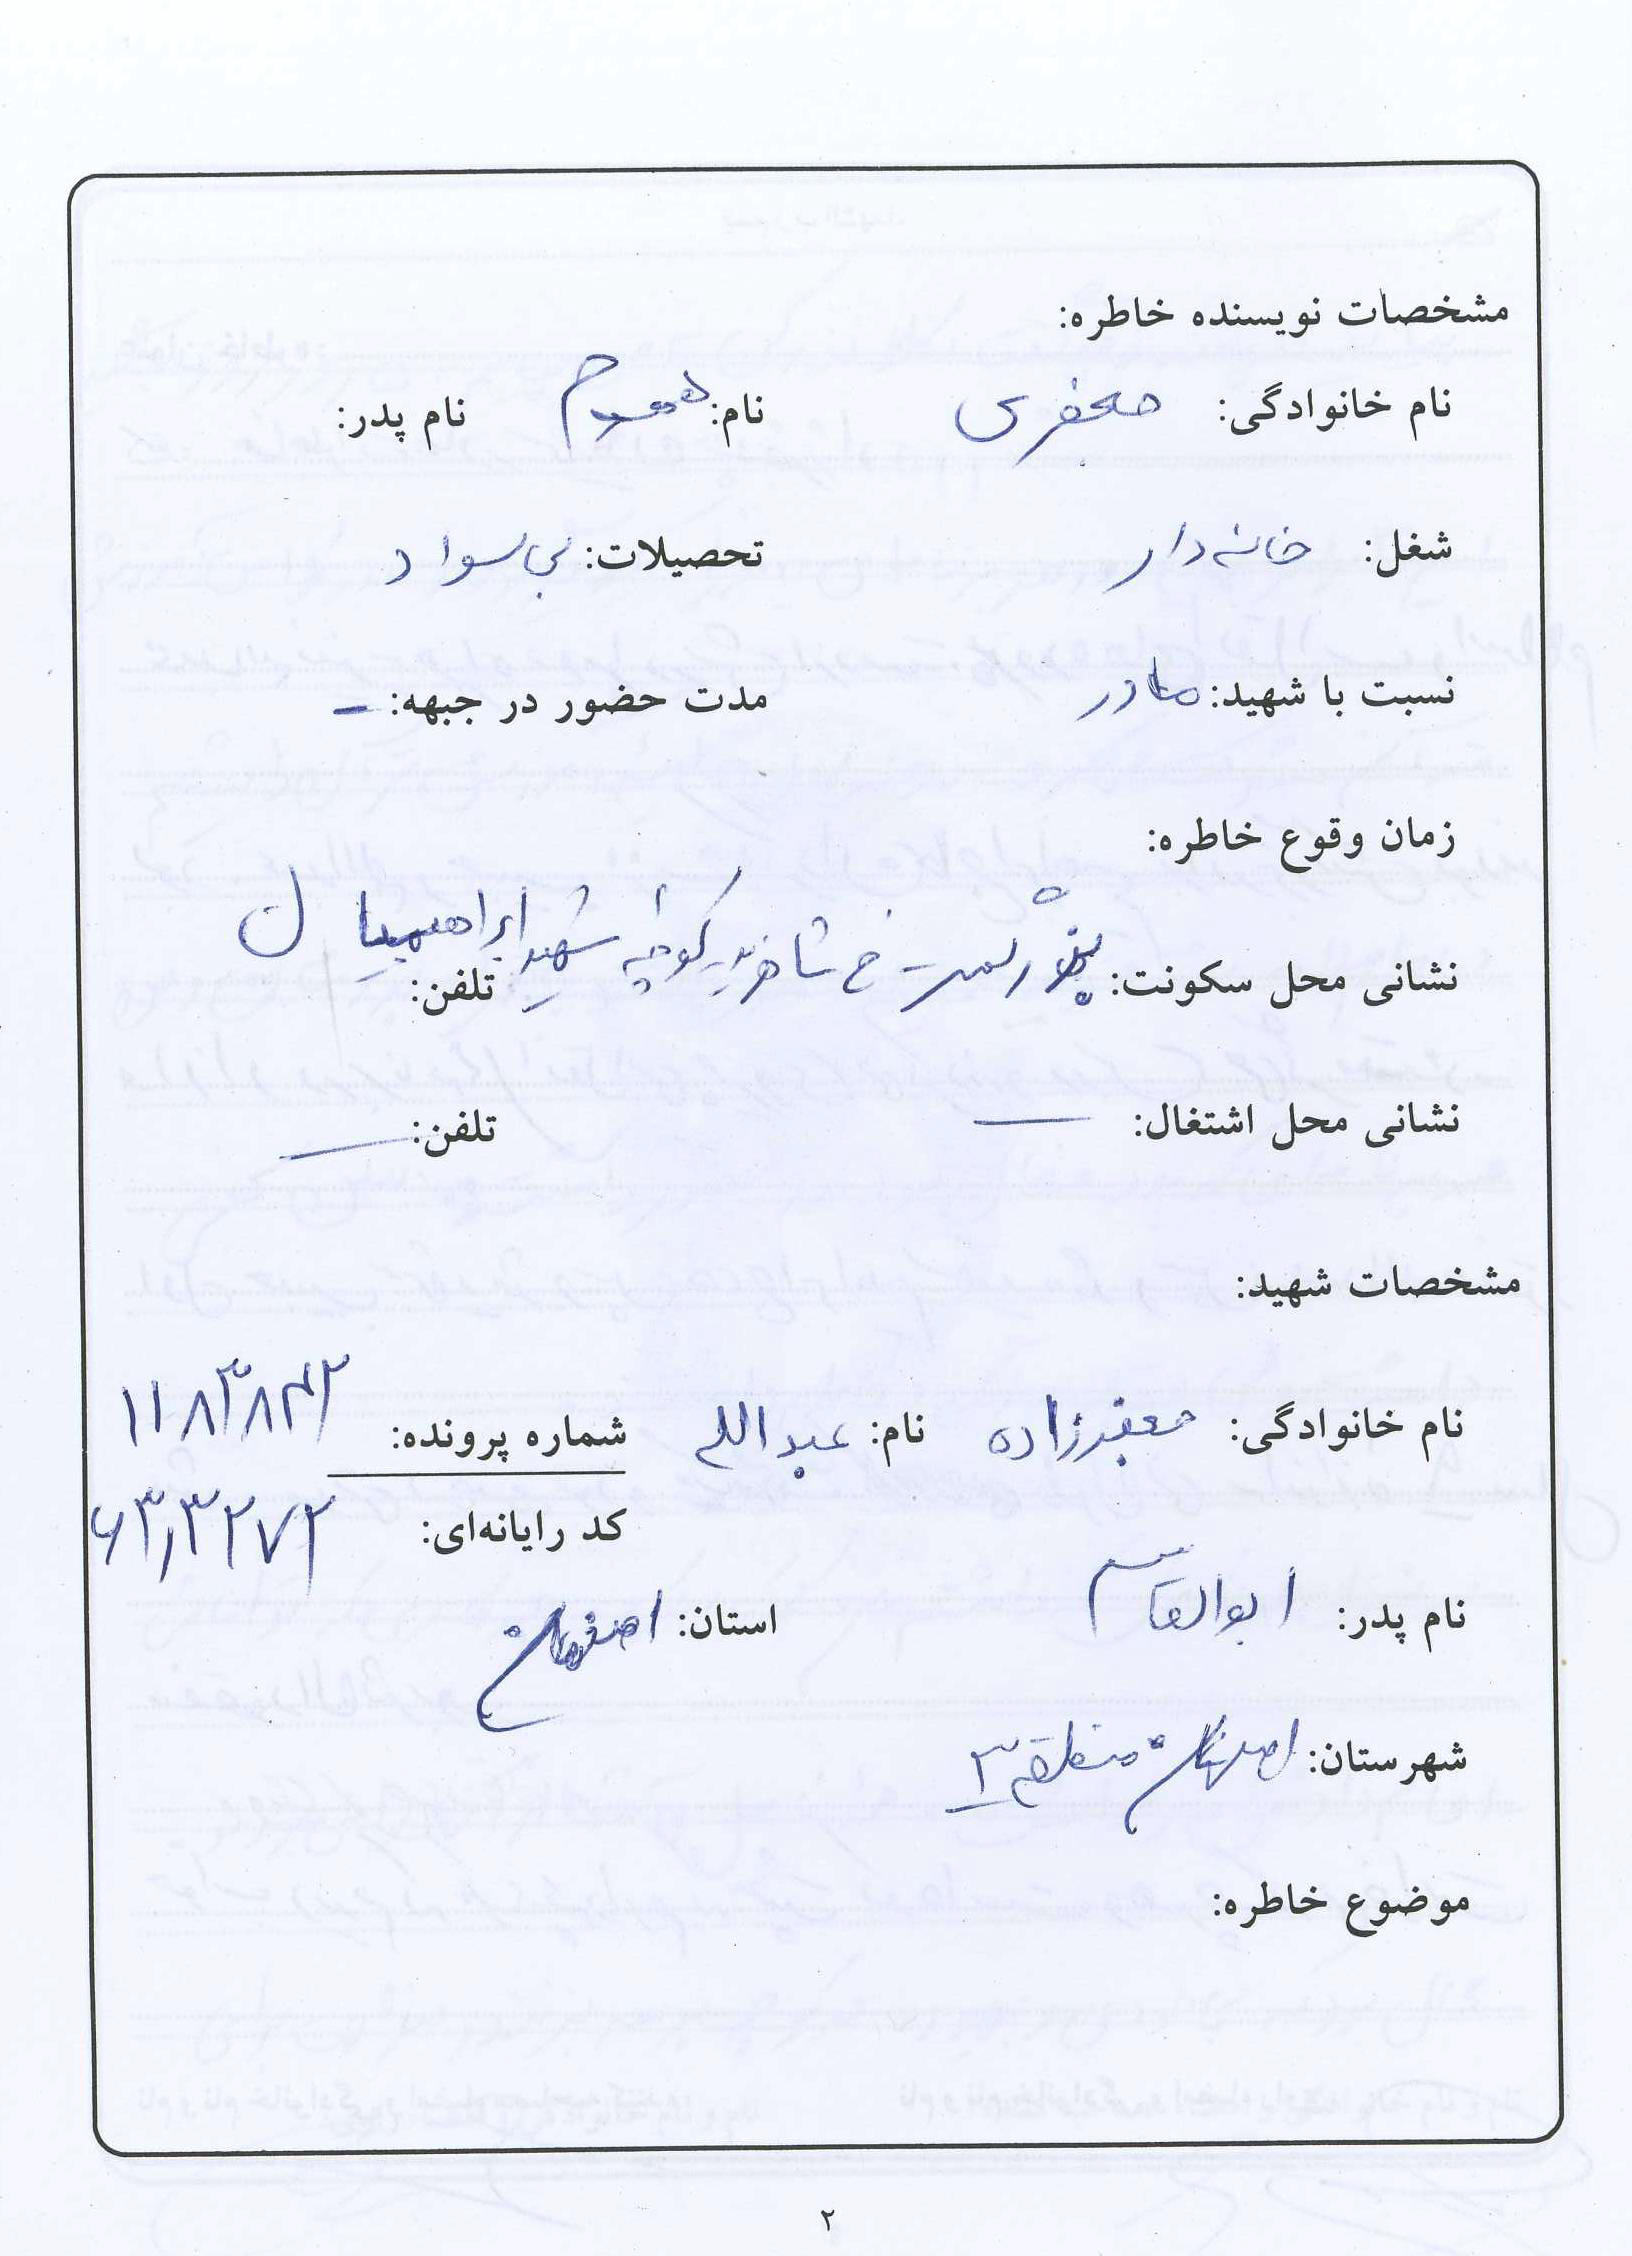 مشخصات نویسنده خاطره:
نام خانوادگی: جعفری نام: نام پدر:
شغل: خانه دار تحصیلات: بی سواد
نسبت با شهید: مادر مدت حضور در جبهه: -
زمان وقوع خاطره:
نشانی محل سکونت: خ کوچه شهید تلفن:
نشانی محل اشتغال: — تلفن: —
مشخصات شهید:
نام خانوادگی: جعفرزاده نام: عبدالله شماره پرونده:
کد رایانه‌ای:
نام پدر: ابوالقاسم استان: اصفهان
شهرستان: اصفهان منطقه ۳
موضوع خاطره:
۲